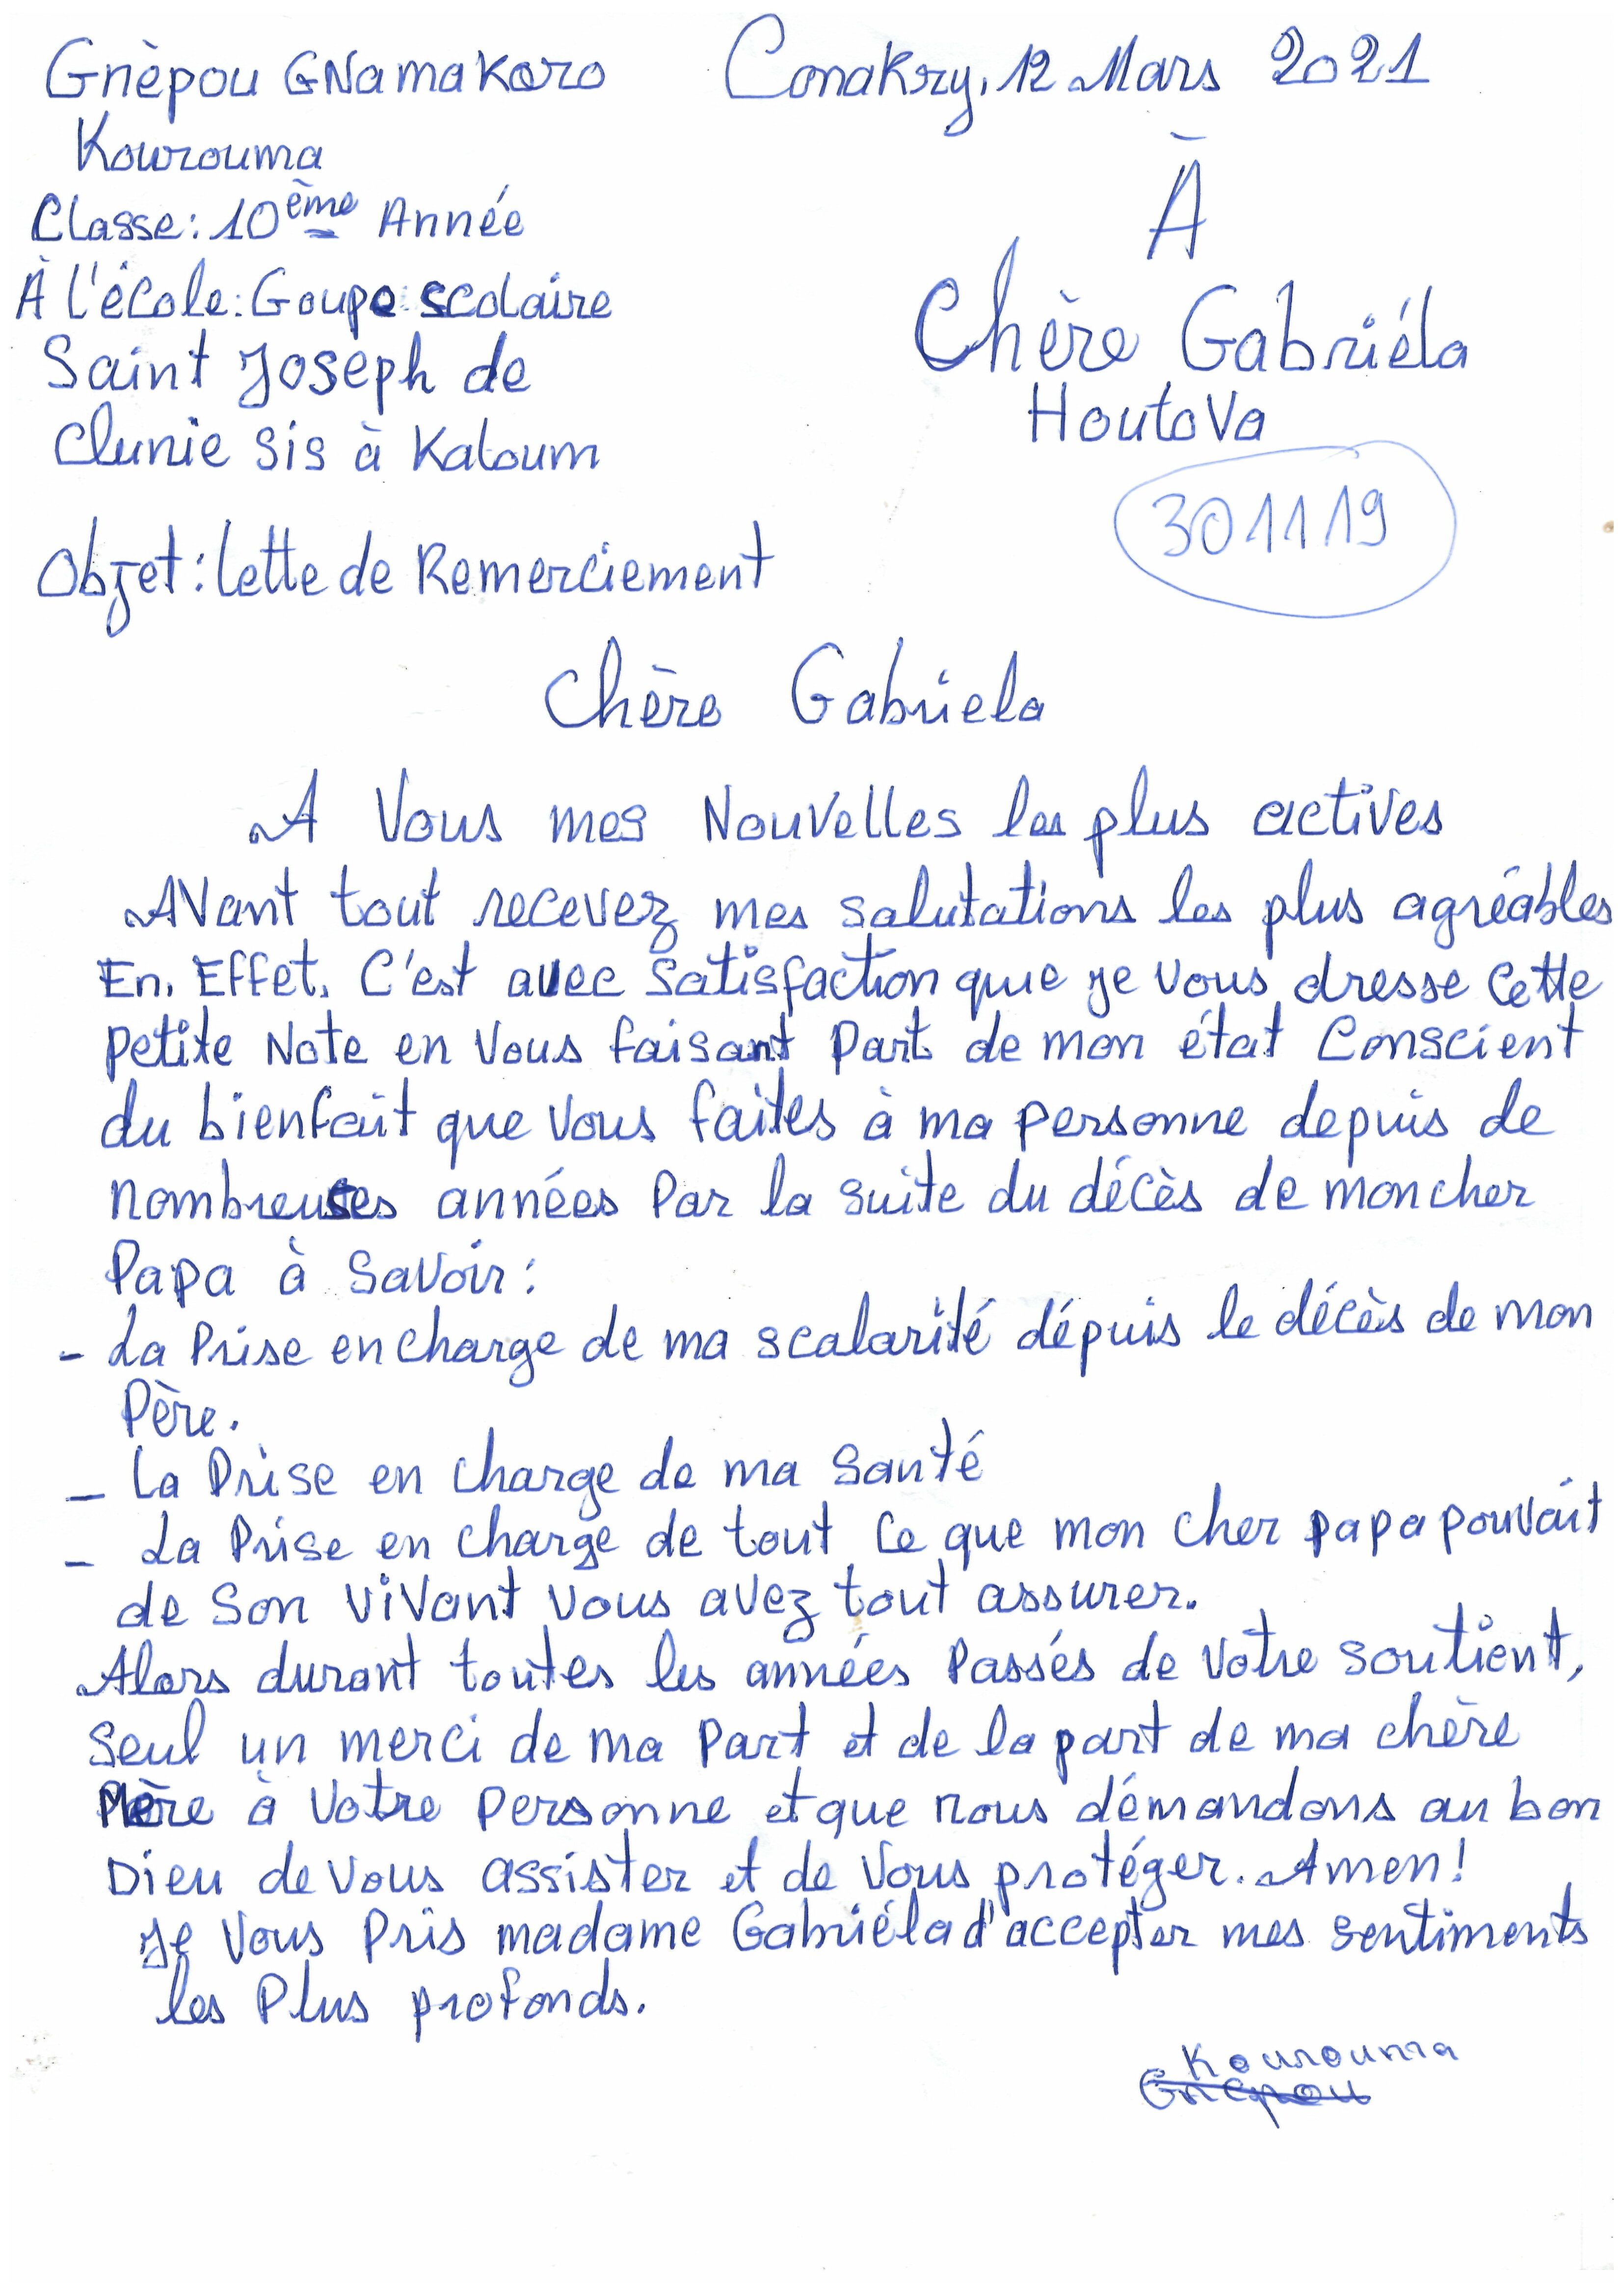 Gnèpou GNamakoro
Kourouma
Classe: 10ème Année
À l'école: Goupe scolaire
Saint Joseph de
Clunie sis à Kaloum
Conakry, 12 Mars 2021
À
Chère Gabriéla
Houtova
301119
Objet: lette de Remerciement
Chère Gabriela
A Vous mes Nouvelles les plus actives
AVant tout recevez mes salutations les plus agréables
En. Effet. C'est avec Satisfaction quie je Vous dresse Cette
petite Note en Vous faisant Part de mon état Conscient
du bienfait que Vous faites à ma personne depuis de
nombreuses années Par la suite du décès de mon cher
Papa à Savoir:
- La Prise en charge de ma scalarité dépuis le décès de mon
Père.
- La Prise en charge de ma Santé
- La Prise en charge de tout Ce que mon cher papa pouvait
de Son ViVant Vous avez tout assurer.
Alors durant toutes les années Passés de Votre soutient,
Seul un merci de ma Part et de la part de ma chère
Mère à Votre personne et que nous démandons au bon
Dieu de Vous assister et de Vous protéger. Amen!
Je Vous Pris madame Gabriéla d'accepter mes sentiments
les Plus profonds.
Kourouma
Gnepou